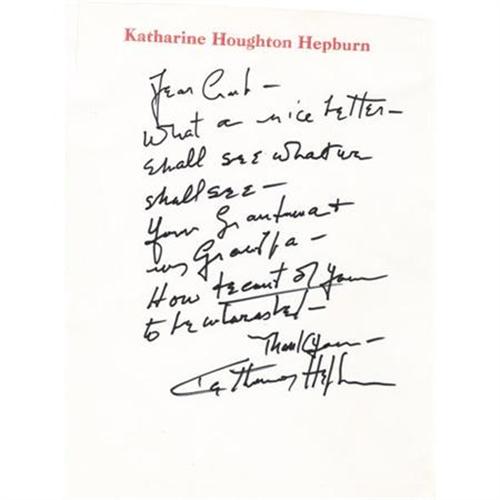 Katharine Houghton Hepburn
Dear
What a nice letter—
shall see what we
shall see—
Your Grandma +
my Grandpa—
How of you
to be interested—
Thank you—
Katharine Hepburn